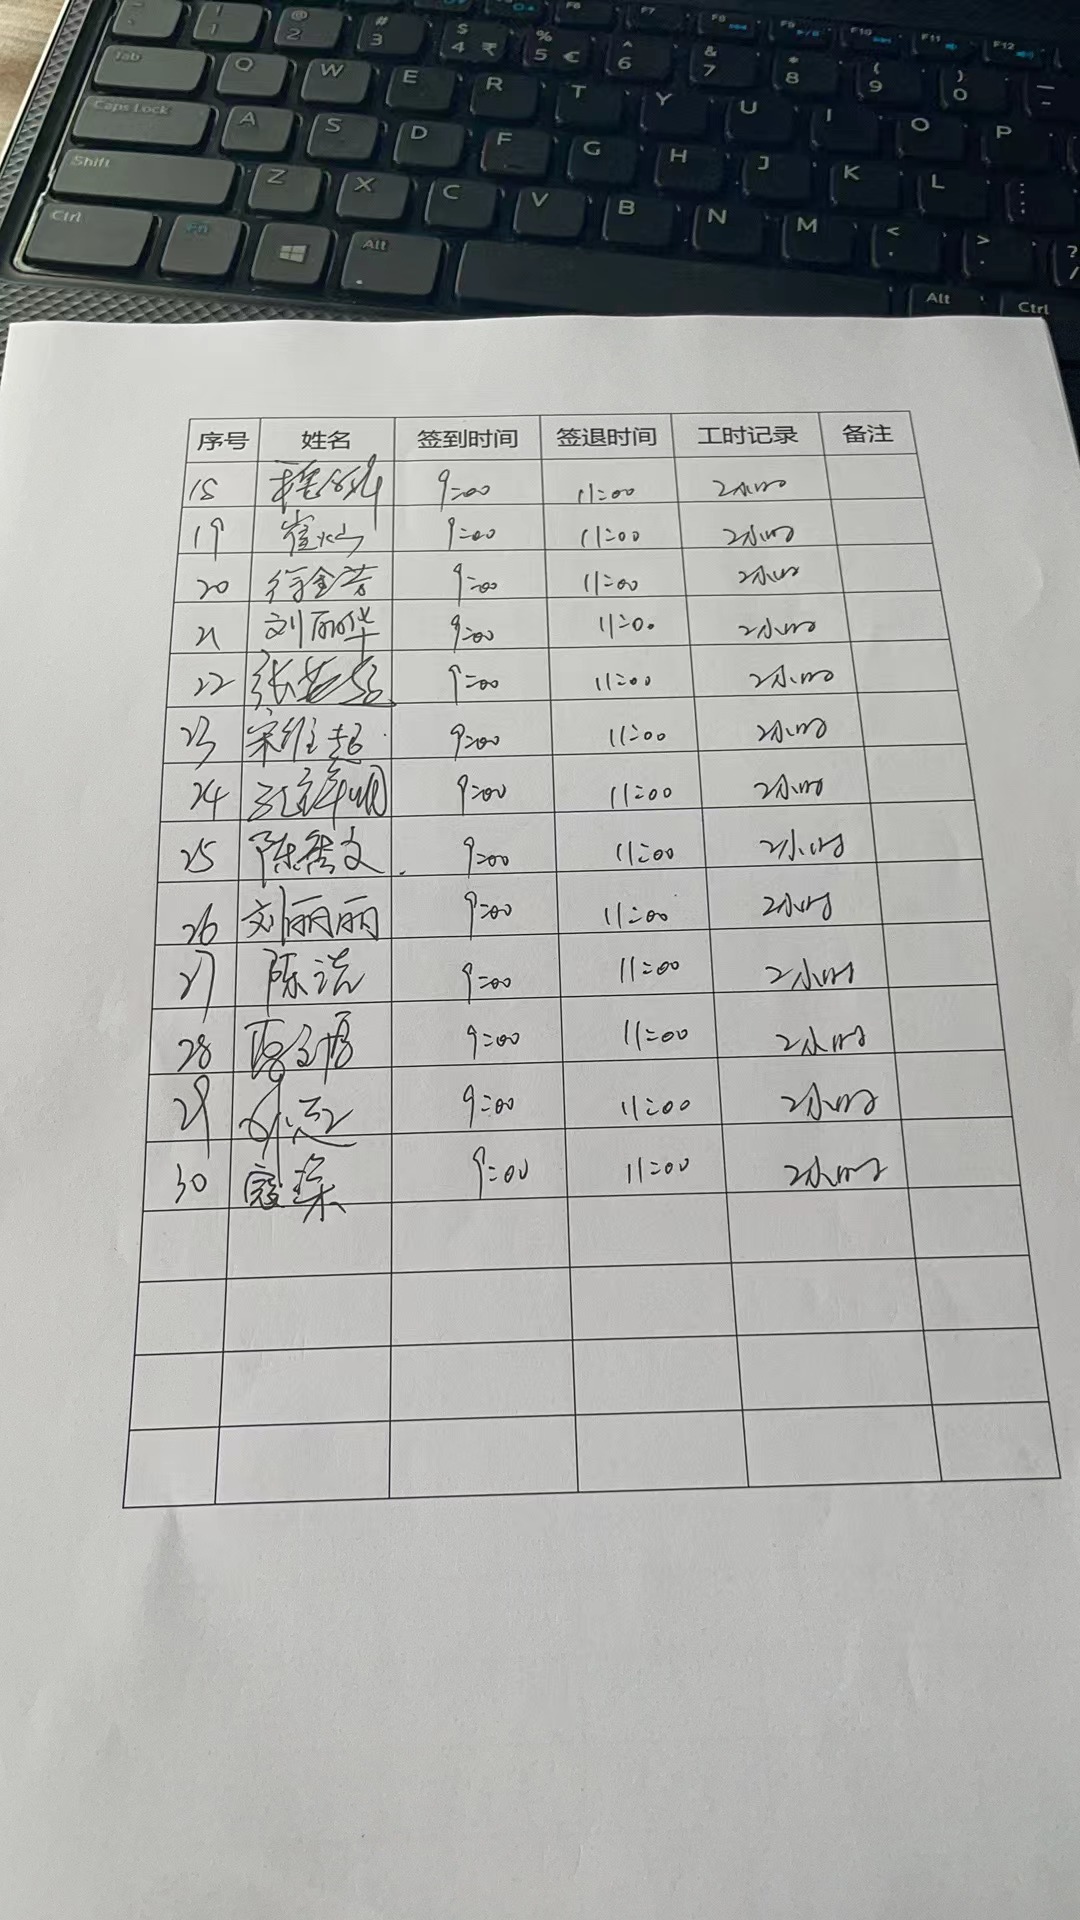 ! 1 @ 2 # 3 $ 4 ₹ % 5 € ^ 6 & 7 * 8 ( 9 ) 0
F6 F7 F8 F9 F10 F11 F12
Tab Q W E R T Y U I O P
Caps Lock A S D F G H J K L
Shift Z X C V B N M < > ? /
Ctrl Fn Alt Alt Ctrl
序号 姓名 签到时间 签退时间 工时记录 备注
18 9:00 11:00 2小时
19 崔灿 9:00 11:00 2小时
20 徐金芳 9:00 11:00 2小时
21 刘丽华 9:00 11:00 2小时
22 9:00 11:00 2小时
23 宋维超 9:00 11:00 2小时
24 9:00 11:00 2小时
25 陈秀文 9:00 11:00 2小时
26 刘丽丽 9:00 11:00 2小时
27 陈洁 9:00 11:00 2小时
28 9:00 11:00 2小时
29 9:00 11:00 2小时
30 寇琛 9:00 11:00 2小时